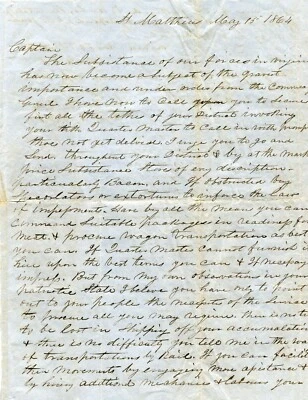 St. Matthews May 15th 1864
Captain
The Subsistance of our forces in virginia
has now become a subject of the gravest
importance and under orders from the Commissary
Genl I have now to Call upon you to
first all the tithes of your District invoking
your Qr Master to Call in with
those not yet delivd. I urge you to go and
Send throughout your District & by at the
Price Subsistance Stores of any discription
Particularly Bacon and if obstructed by
Speculators or extortioners to enforce the Law
of Impressment. Use by all the means you can
Command Suitable
& Procure Wagon transportation as best
you can. If Quarter Master Cannot furnish it
hire upon the best terms you can & if necessary
impress. But from my own observation in your
Patriotic State I believe you have only to point
out to your people the necessities of the Service
to procure all you may require there is no time
to be lost in Shipping off your accumulation
& there is no difficulty you tell me in the way
of transportation by Rail. If you can facilitate
their movements by engaging more assistance &
by hiring additional mechanics & labours your